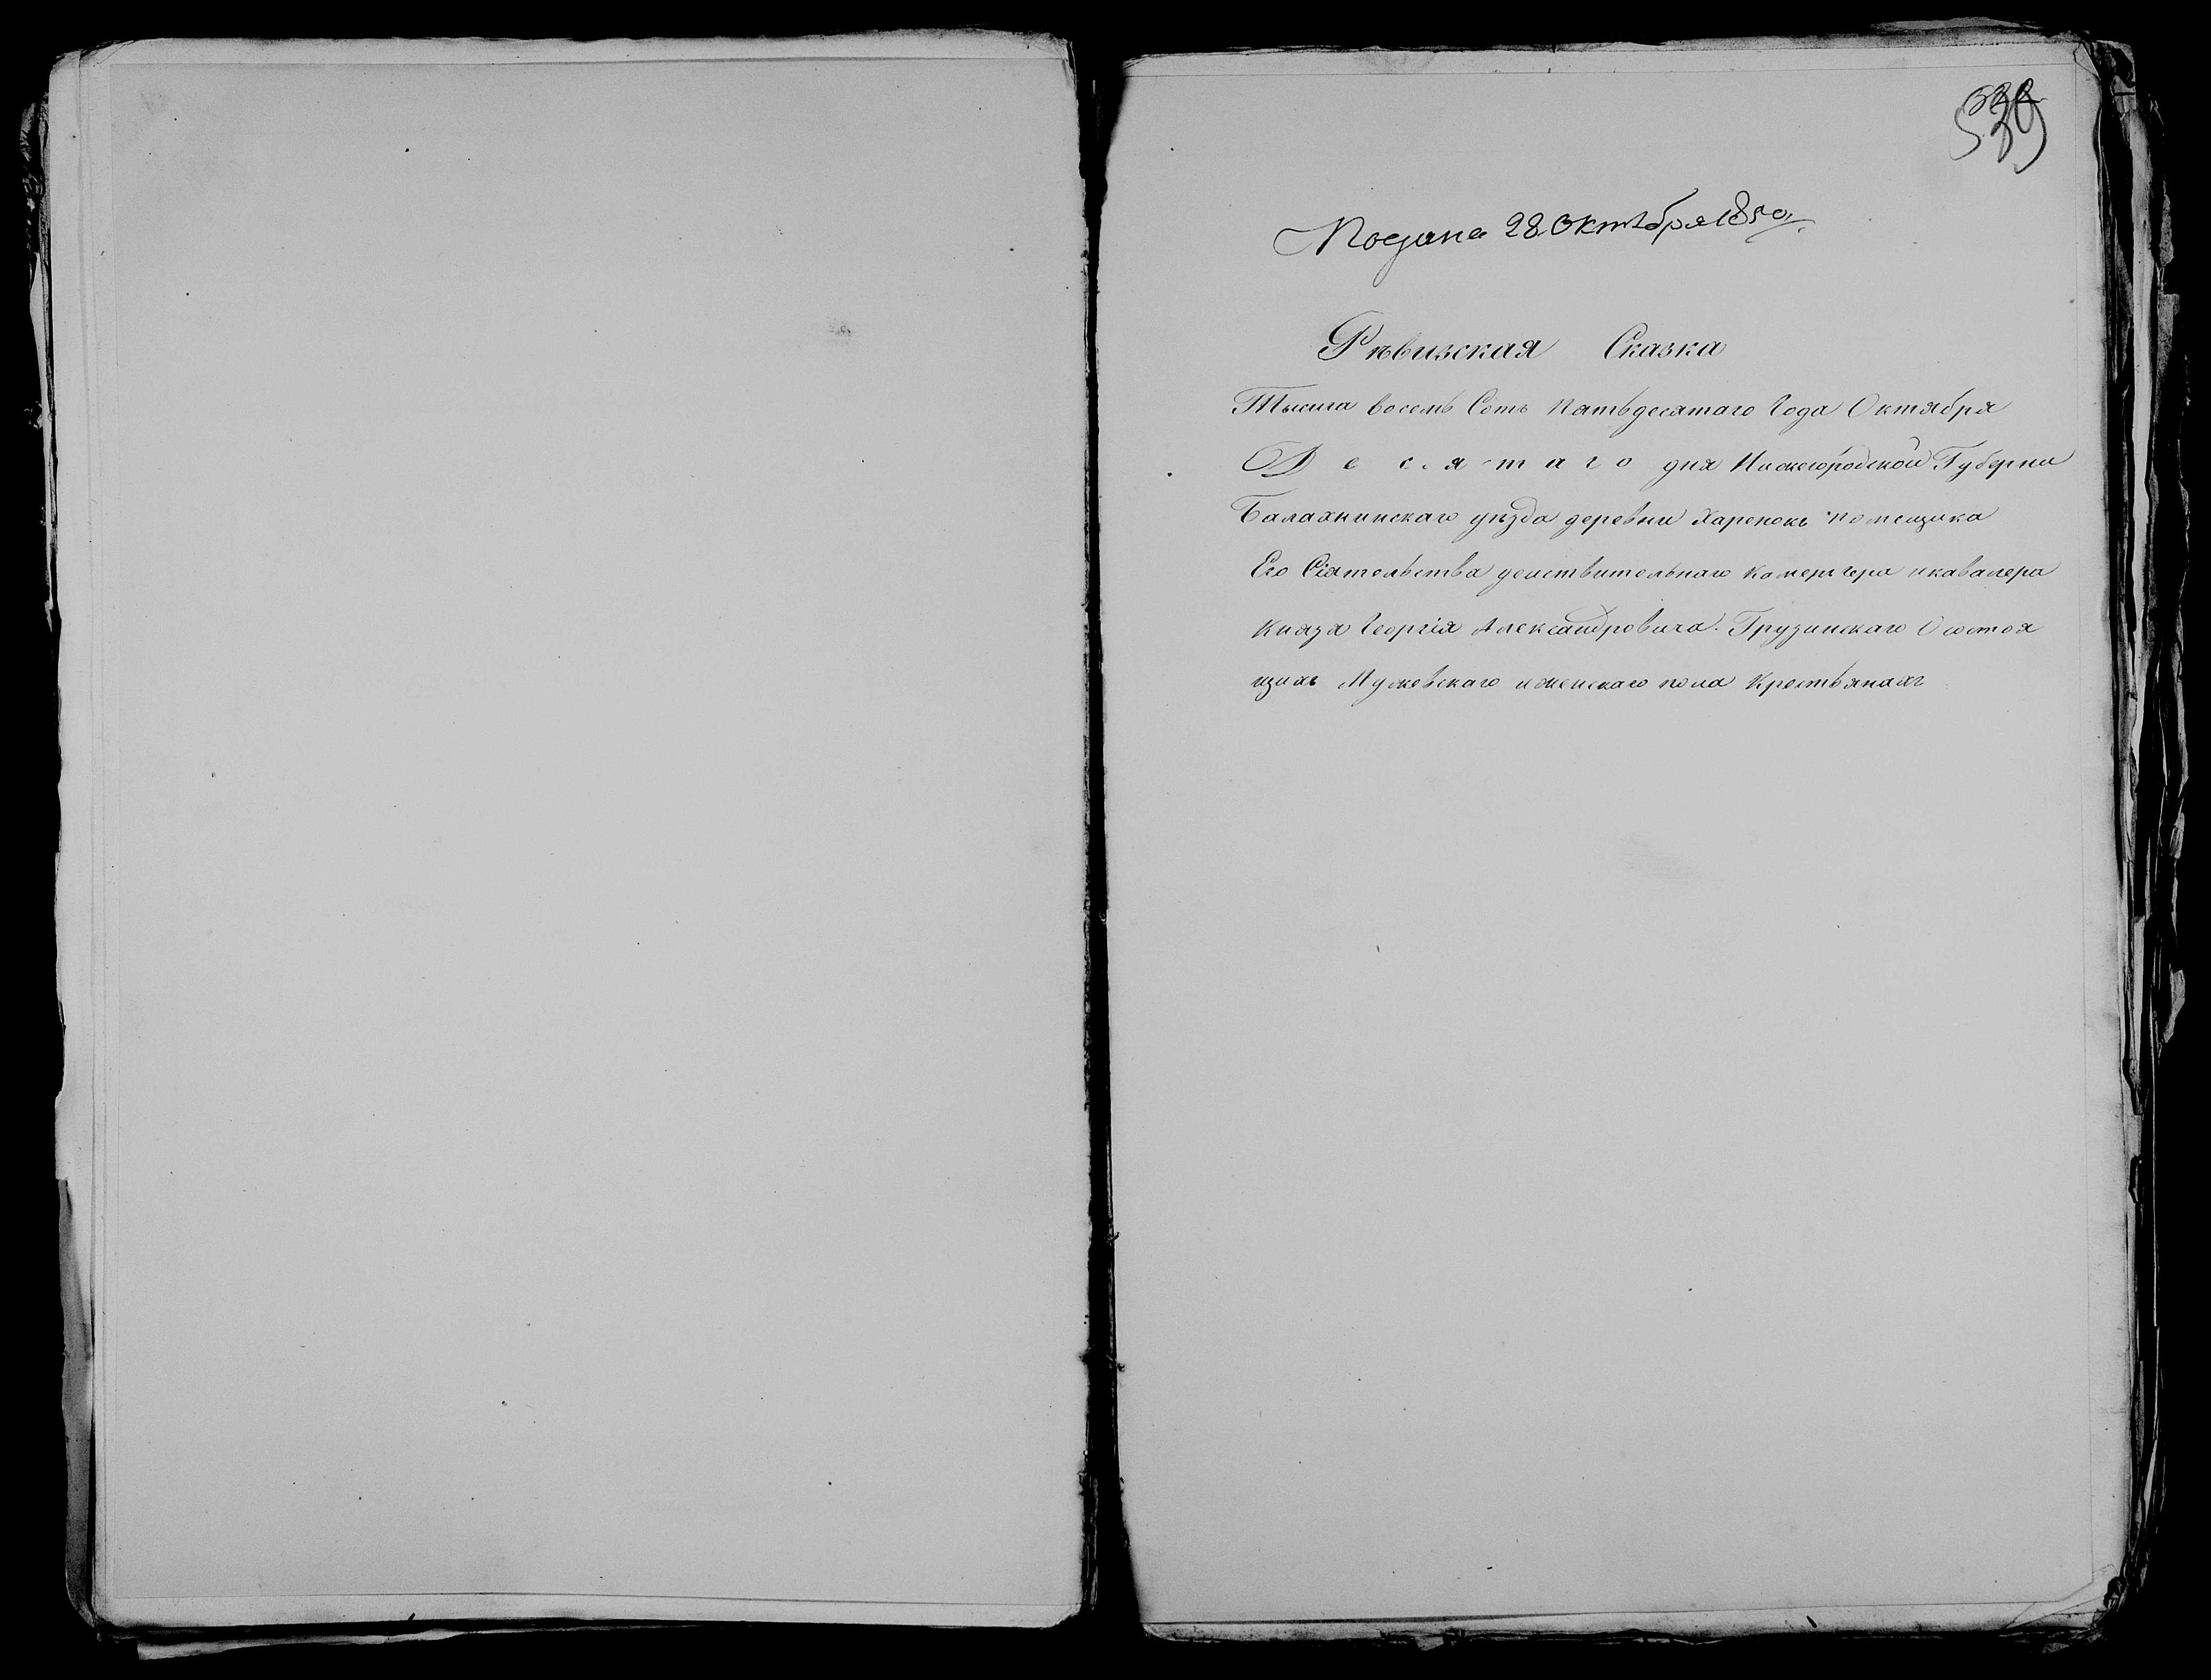 539
Подана 28 Октября 1850 г.
Рѣвизская Сказка
Тысяча восемь Сотъ Пятьдесятаго Года Октября
Десятаго дня Нижегородской Губерни
Балахнинскаго уѣзда деревни Харенокъ помещика
Его Сіятельства действительнаго Камергера и кавалера
Князя Георгія Александровича Грузинскаго О состоя
щихъ Мужевскаго и женскаго пола Крестьянахъ